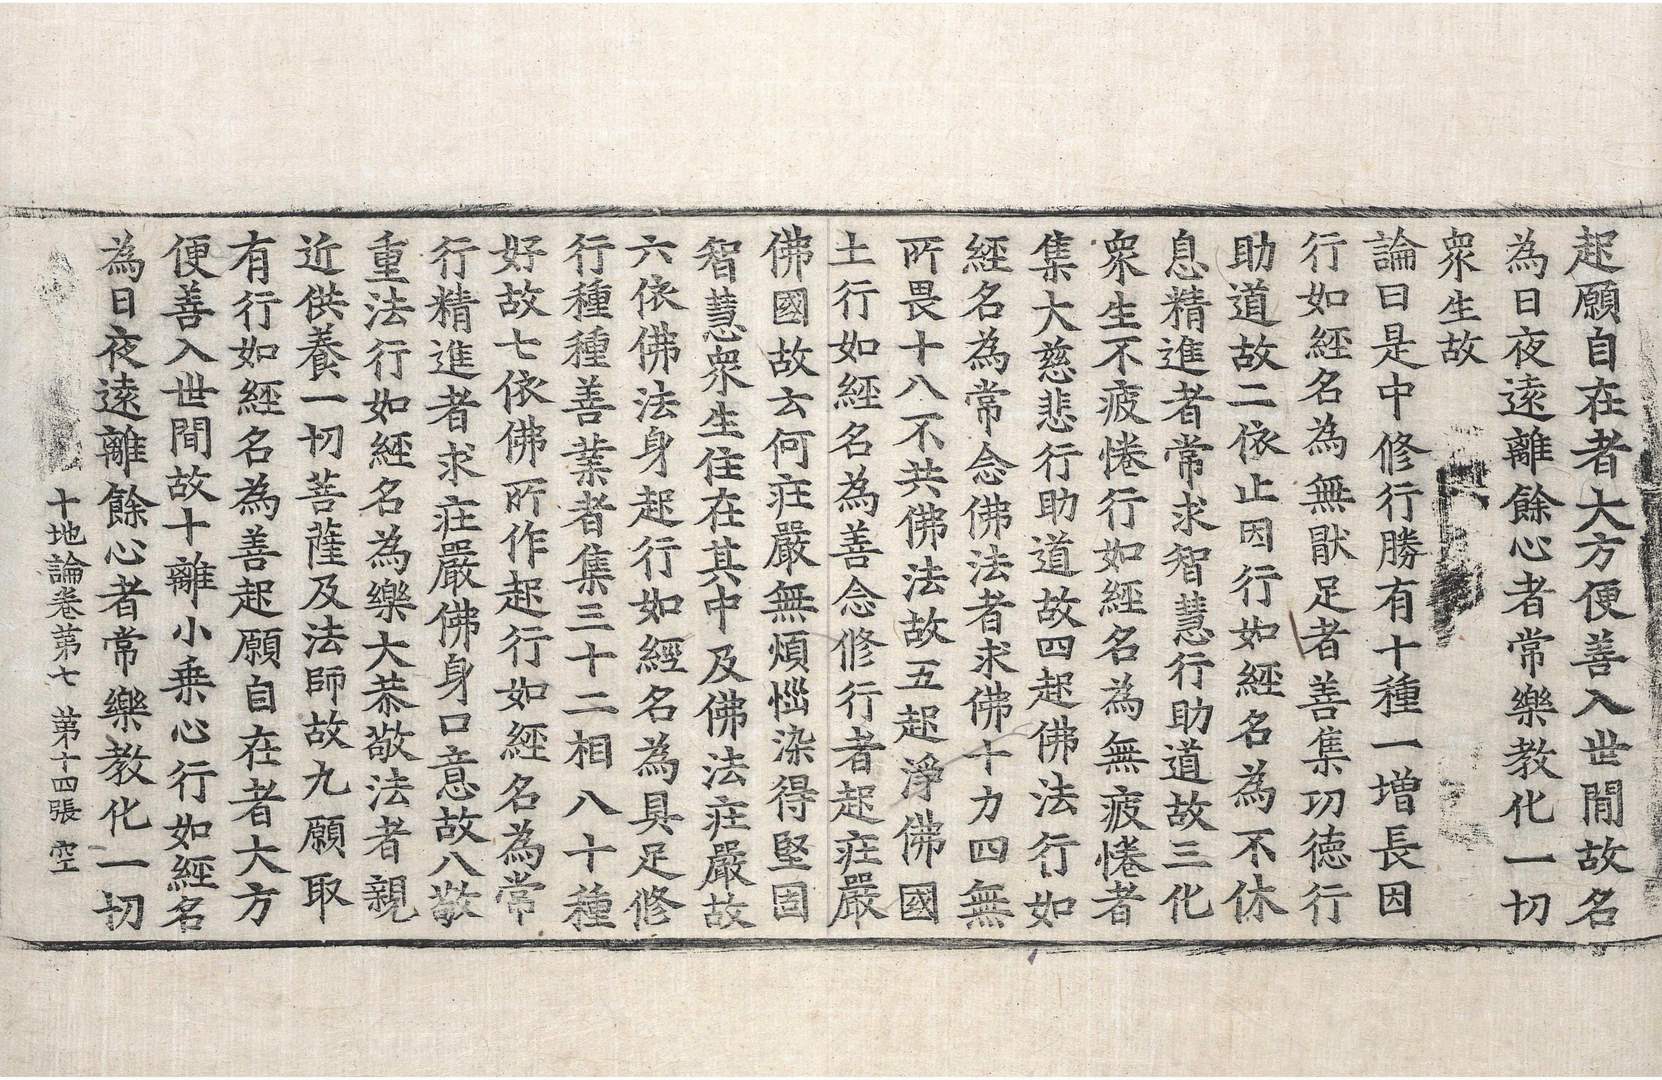 起願自在者大方便善入世間故名
為日夜遠離餘心者常樂教化一切
衆生故
論曰是中修行勝有十種一增長因
行如經名為無猒足者善集功德行
助道故二依止因行如經名為不休
息精進者常求智慧行助道故三化
衆生不疲惓行如經名為無疲惓者
集大慈悲行助道故四起佛法行如
經名為常念佛法者求佛十力四無
所畏十八不共佛法故五起淨佛國
土行如經名為善念修行者起莊嚴
佛國故云何莊嚴無煩惱染得堅固
智慧衆生住在其中及佛法莊嚴故
六依佛法身起行如經名為具足修
行種種善業者集三十二相八十種
好故七依佛所作起行如經名為常
行精進者求莊嚴佛身口意故八敬
重法行如經名為樂大恭敬法者親
近供養一切菩薩及法師故九願取
有行如經名為善起願自在者大方
便善入世間故十離小乗心行如經名
為日夜遠離餘心者常樂教化一切
十地論卷第七 第十四張 空